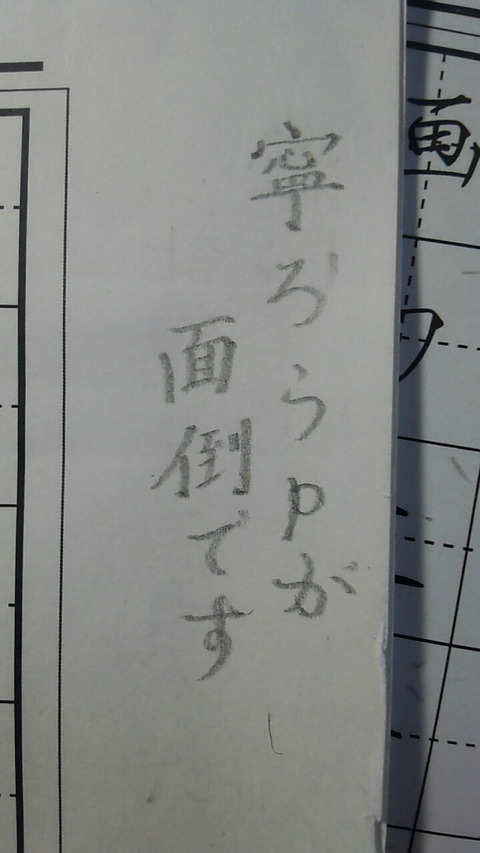 寧ろらpが
面倒です
画